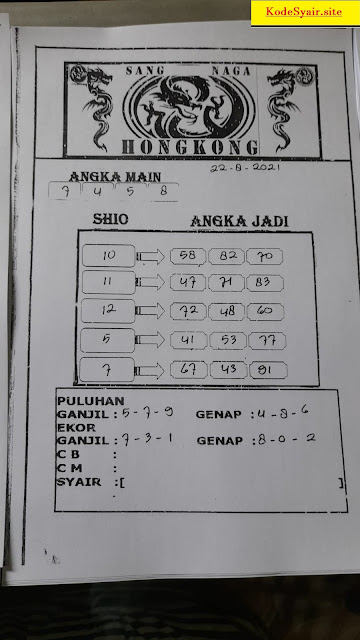 KodeSyair.site
SANG NAGA
HONGKONG
22-8-2021
ANGKA MAIN
7 4 5 8
SHIO ANGKA JADI
10 58 82 70
11 47 71 83
12 72 48 60
5 41 53 77
7 67 43 91
PULUHAN
GANJIL : 5-7-9 GENAP : 4-8-6
EKOR
GANJIL : 7-3-1 GENAP : 8-0-2
C B :
C M :
SYAIR :[ ]
: